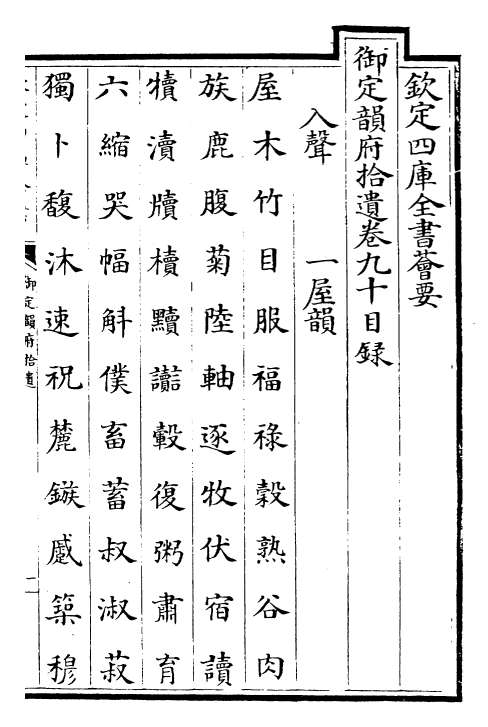 欽定四庫全書薈要
御定韻府拾遺卷九十目録
入聲　一屋韻
屋木竹目服福祿穀熟谷肉
族鹿腹菊陸軸逐牧伏宿讀
犢瀆牘櫝黷讟轂復粥肅育
六縮哭幅斛僕畜蓄叔淑菽
獨卜馥沐速祝麓鏃蹙築穆
御定韻府拾遺